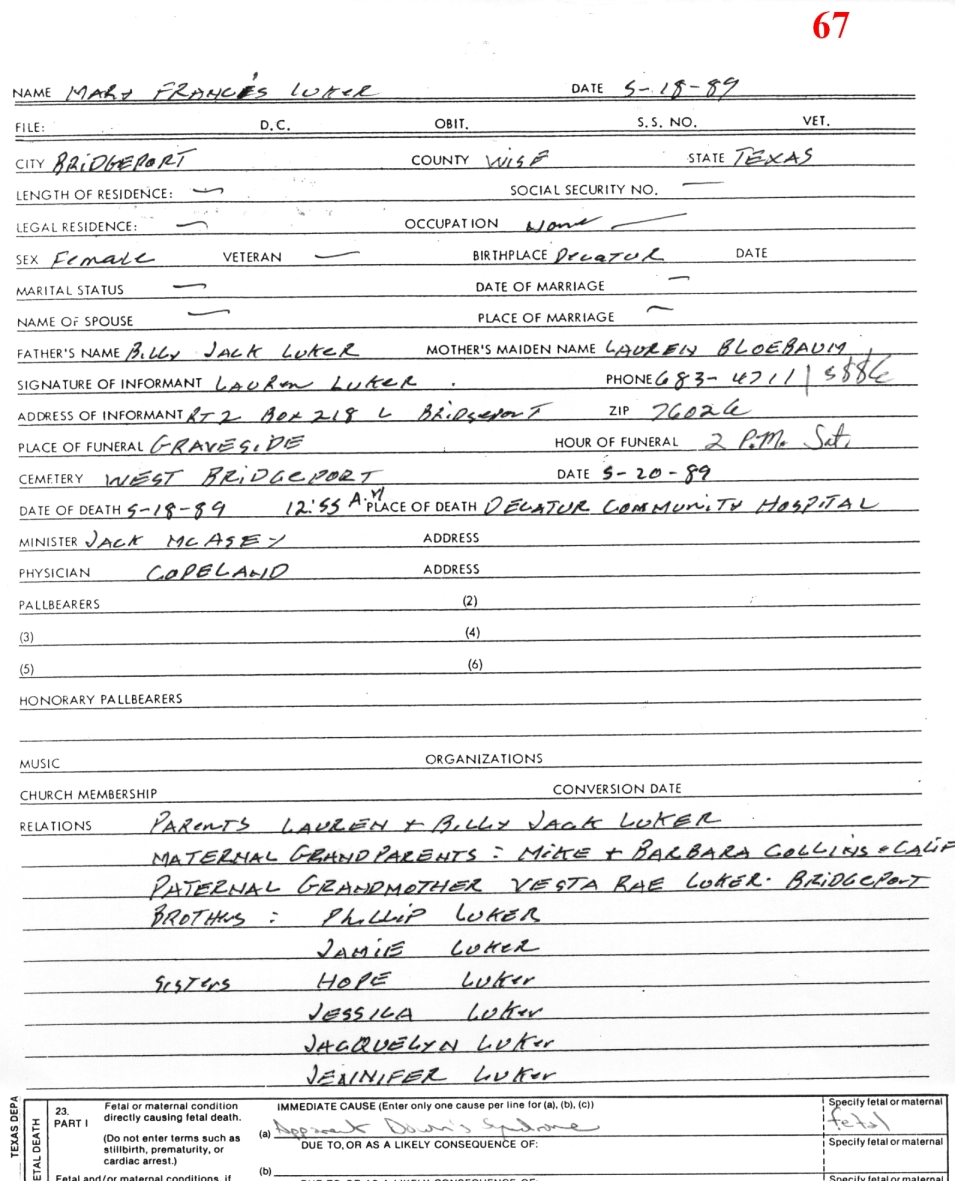 67
NAME MARY FRANCES LUKER DATE 5-18-89
FILE: D.C. OBIT. S.S. NO. VET.
CITY BRIDGEPORT COUNTY WISE STATE TEXAS
LENGTH OF RESIDENCE: — SOCIAL SECURITY NO. —
LEGAL RESIDENCE: — OCCUPATION None —
SEX Female VETERAN — BIRTHPLACE DECATUR DATE
MARITAL STATUS — DATE OF MARRIAGE —
NAME OF SPOUSE — PLACE OF MARRIAGE —
FATHER'S NAME BILLY JACK LUKER MOTHER'S MAIDEN NAME LAUREN BLOEBAUM
SIGNATURE OF INFORMANT LAUREN LUKER . PHONE 683-4711 | 3886
ADDRESS OF INFORMANT RT 2 BOX 218 L BRIDGEPORT ZIP 76026
PLACE OF FUNERAL GRAVESIDE HOUR OF FUNERAL 2 P.M. Sat.
CEMETERY WEST BRIDGEPORT DATE 5-20-89
DATE OF DEATH 5-18-89 12:55 A.M PLACE OF DEATH DECATUR COMMUNITY HOSPITAL
MINISTER JACK MCASEY ADDRESS
PHYSICIAN COPELAND ADDRESS
PALLBEARERS (2)
(3) (4)
(5) (6)
HONORARY PALLBEARERS
MUSIC ORGANIZATIONS
CHURCH MEMBERSHIP CONVERSION DATE
RELATIONS PARENTS LAUREN + BILLY JACK LUKER
MATERNAL GRANDPARENTS: MIKE + BARBARA COLLINS - CALIF
PATERNAL GRANDMOTHER VESTA RAE LUKER - BRIDGEPORT
BROTHERS : PHILLIP LUKER
JAMIE LUKER
SISTERS HOPE LUKER
JESSICA LUKER
JACQUELYN LUKER
JENNIFER LUKER
TEXAS DEPA
ETAL DEATH
23. PART I
Fetal or maternal condition
directly causing fetal death.
(Do not enter terms such as
stillbirth, prematurity, or
cardiac arrest.)
Fetal and/or maternal conditions, if
IMMEDIATE CAUSE (Enter only one cause per line for (a), (b), (c))
(a) Apparent Down's Syndrome
DUE TO, OR AS A LIKELY CONSEQUENCE OF:
(b)
DUE TO, OR AS A LIKELY CONSEQUENCE OF:
Specify fetal or maternal
fetal
Specify fetal or maternal
Specify fetal or maternal